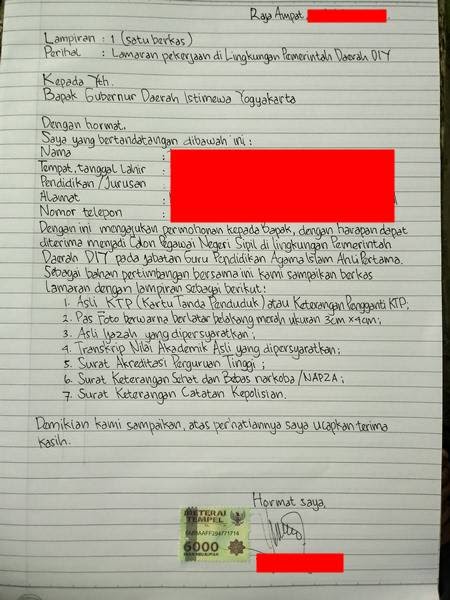 Raja Ampat,
Lampiran : 1 (satu berkas)
Perihal : Lamaran pekerjaan di Lingkungan Pemerintah Daerah DIY
Kepada Yth.
Bapak Gubernur Daerah Istimewa Yogyakarta
Dengan hormat,
Saya yang bertandatangan dibawah ini :
Nama :
Tempat, tanggal lahir :
Pendidikan / Jurusan :
Alamat :
Nomor telepon :
Dengan ini mengajukan permohonan kepada Bapak, dengan harapan dapat
diterima menjadi Calon Pegawai Negeri Sipil di lingkungan Pemerintah
Daerah DIY pada jabatan Guru Pendidikan Agama Islam Ahli Pertama.
Sebagai bahan pertimbangan bersama ini kami sampaikan berkas
lamaran dengan lampiran sebagai berikut:
1. Asli KTP (Kartu Tanda Penduduk) atau Keterangan Pengganti KTP;
2. Pas Foto berwarna berlatar belakang merah ukuran 3cm x 4cm;
3. Asli Ijazah yang dipersyaratkan;
4. Transkrip Nilai Akademik Asli yang dipersyaratkan;
5. Surat Akreditasi Perguruan Tinggi;
6. Surat Keterangan Sehat dan Bebas narkoba / NAPZA;
7. Surat Keterangan Catatan Kepolisian.
Demikian kami sampaikan, atas perhatiannya saya ucapkan terima
kasih.
Hormat saya,
METERAI
TEMPEL
6000